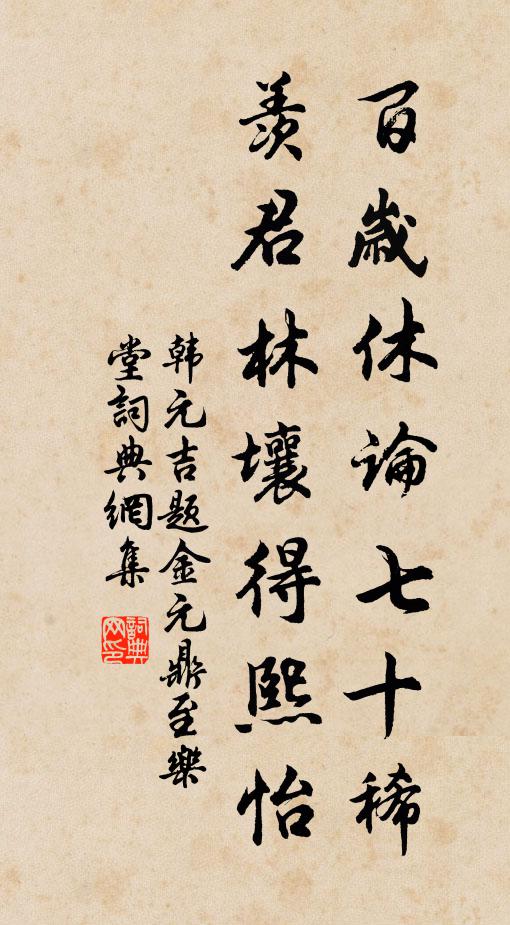 百歲休論七十稀
羨君林壤得熙怡
韩元吉题金元鼎至樂
堂詞典網集
詞典
网印